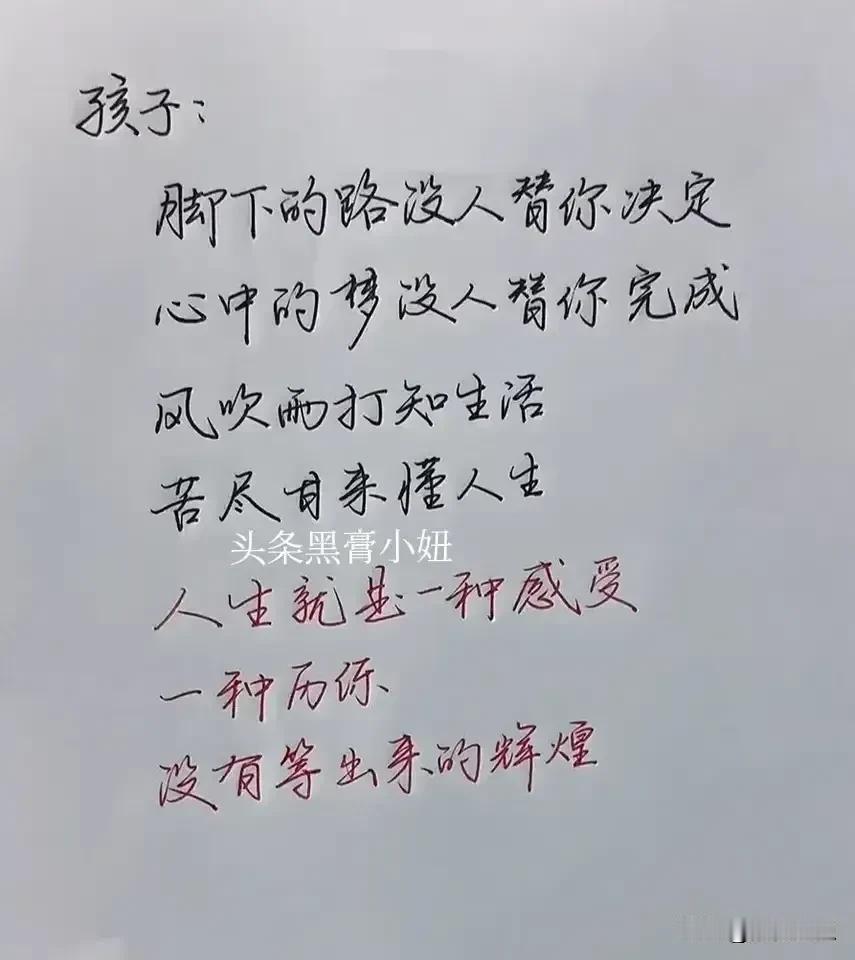 孩子：
脚下的路没人替你决定
心中的梦没人替你完成
风吹雨打知生活
苦尽甘来懂人生
头条黑膏小妞
人生就是一种感受
一种历练
没有等出来的辉煌